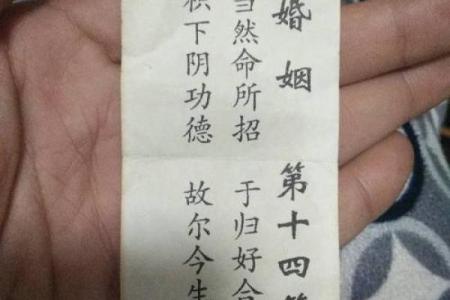 婚姻 第十四
当然命所招 于归好合
积下阴功德 故尔今生